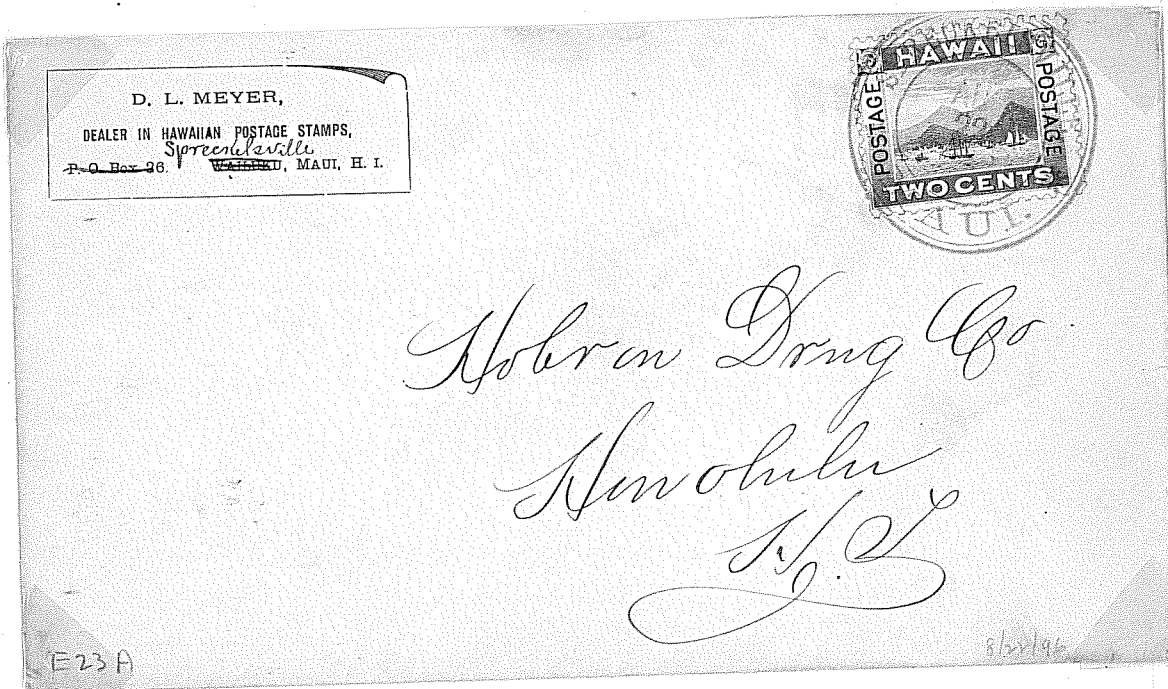 D. L. MEYER,
DEALER IN HAWAIIAN POSTAGE STAMPS,
Spreckelsville
P. O. Box 26. WAILUKU, MAUI, H. I.
HAWAII
POSTAGE
POSTAGE
TWO CENTS
AUI.
Hobron Drug Co
Honolulu
H. I
8/22/96
E23A